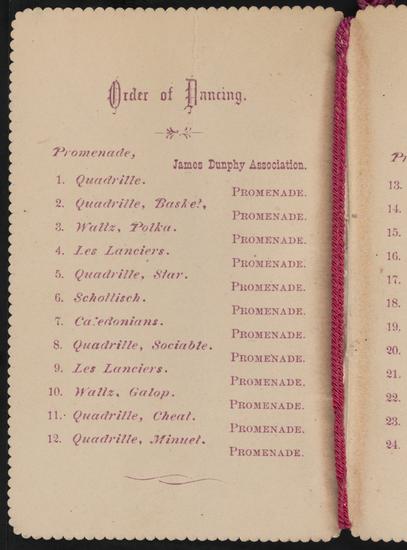 Order of Dancing.
Promenade,
James Dunphy Association.
1. Quadrille.
PROMENADE.
2. Quadrille, Basket,
PROMENADE.
3. Waltz, Polka.
PROMENADE.
4. Les Lanciers.
PROMENADE.
5. Quadrille, Star.
PROMENADE.
6. Schottisch.
PROMENADE.
7. Caledonians.
PROMENADE.
8. Quadrille, Sociable.
PROMENADE.
9. Les Lanciers.
PROMENADE.
10. Waltz, Galop.
PROMENADE.
11. Quadrille, Cheat.
PROMENADE.
12. Quadrille, Minuet.
PROMENADE.
Pr
13.
14.
15.
16.
17.
18.
19.
20.
21.
22.
23.
24.